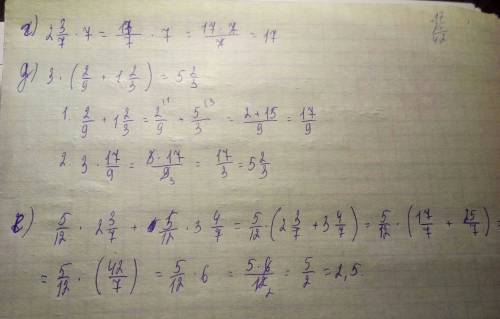 г) 2 3/7 · 7 = 17/7 · 7 = (17 · 7)/7 = 17
д) 3 · (2/9 + 1 2/3) = 5 2/3
1. 2/9 + 1 2/3 = 2/9 + 5/3 = (2+15)/9 = 17/9
2. 3 · 17/9 = (3 · 17)/9 = 17/3 = 5 2/3
е) 5/12 · 2 3/7 + 5/12 · 3 4/7 = 5/12 · (2 3/7 + 3 4/7) = 5/12 · (17/7 + 25/7) =
= 5/12 · (42/7) = 5/12 · 6 = (5 · 6)/12 = 5/2 = 2,5